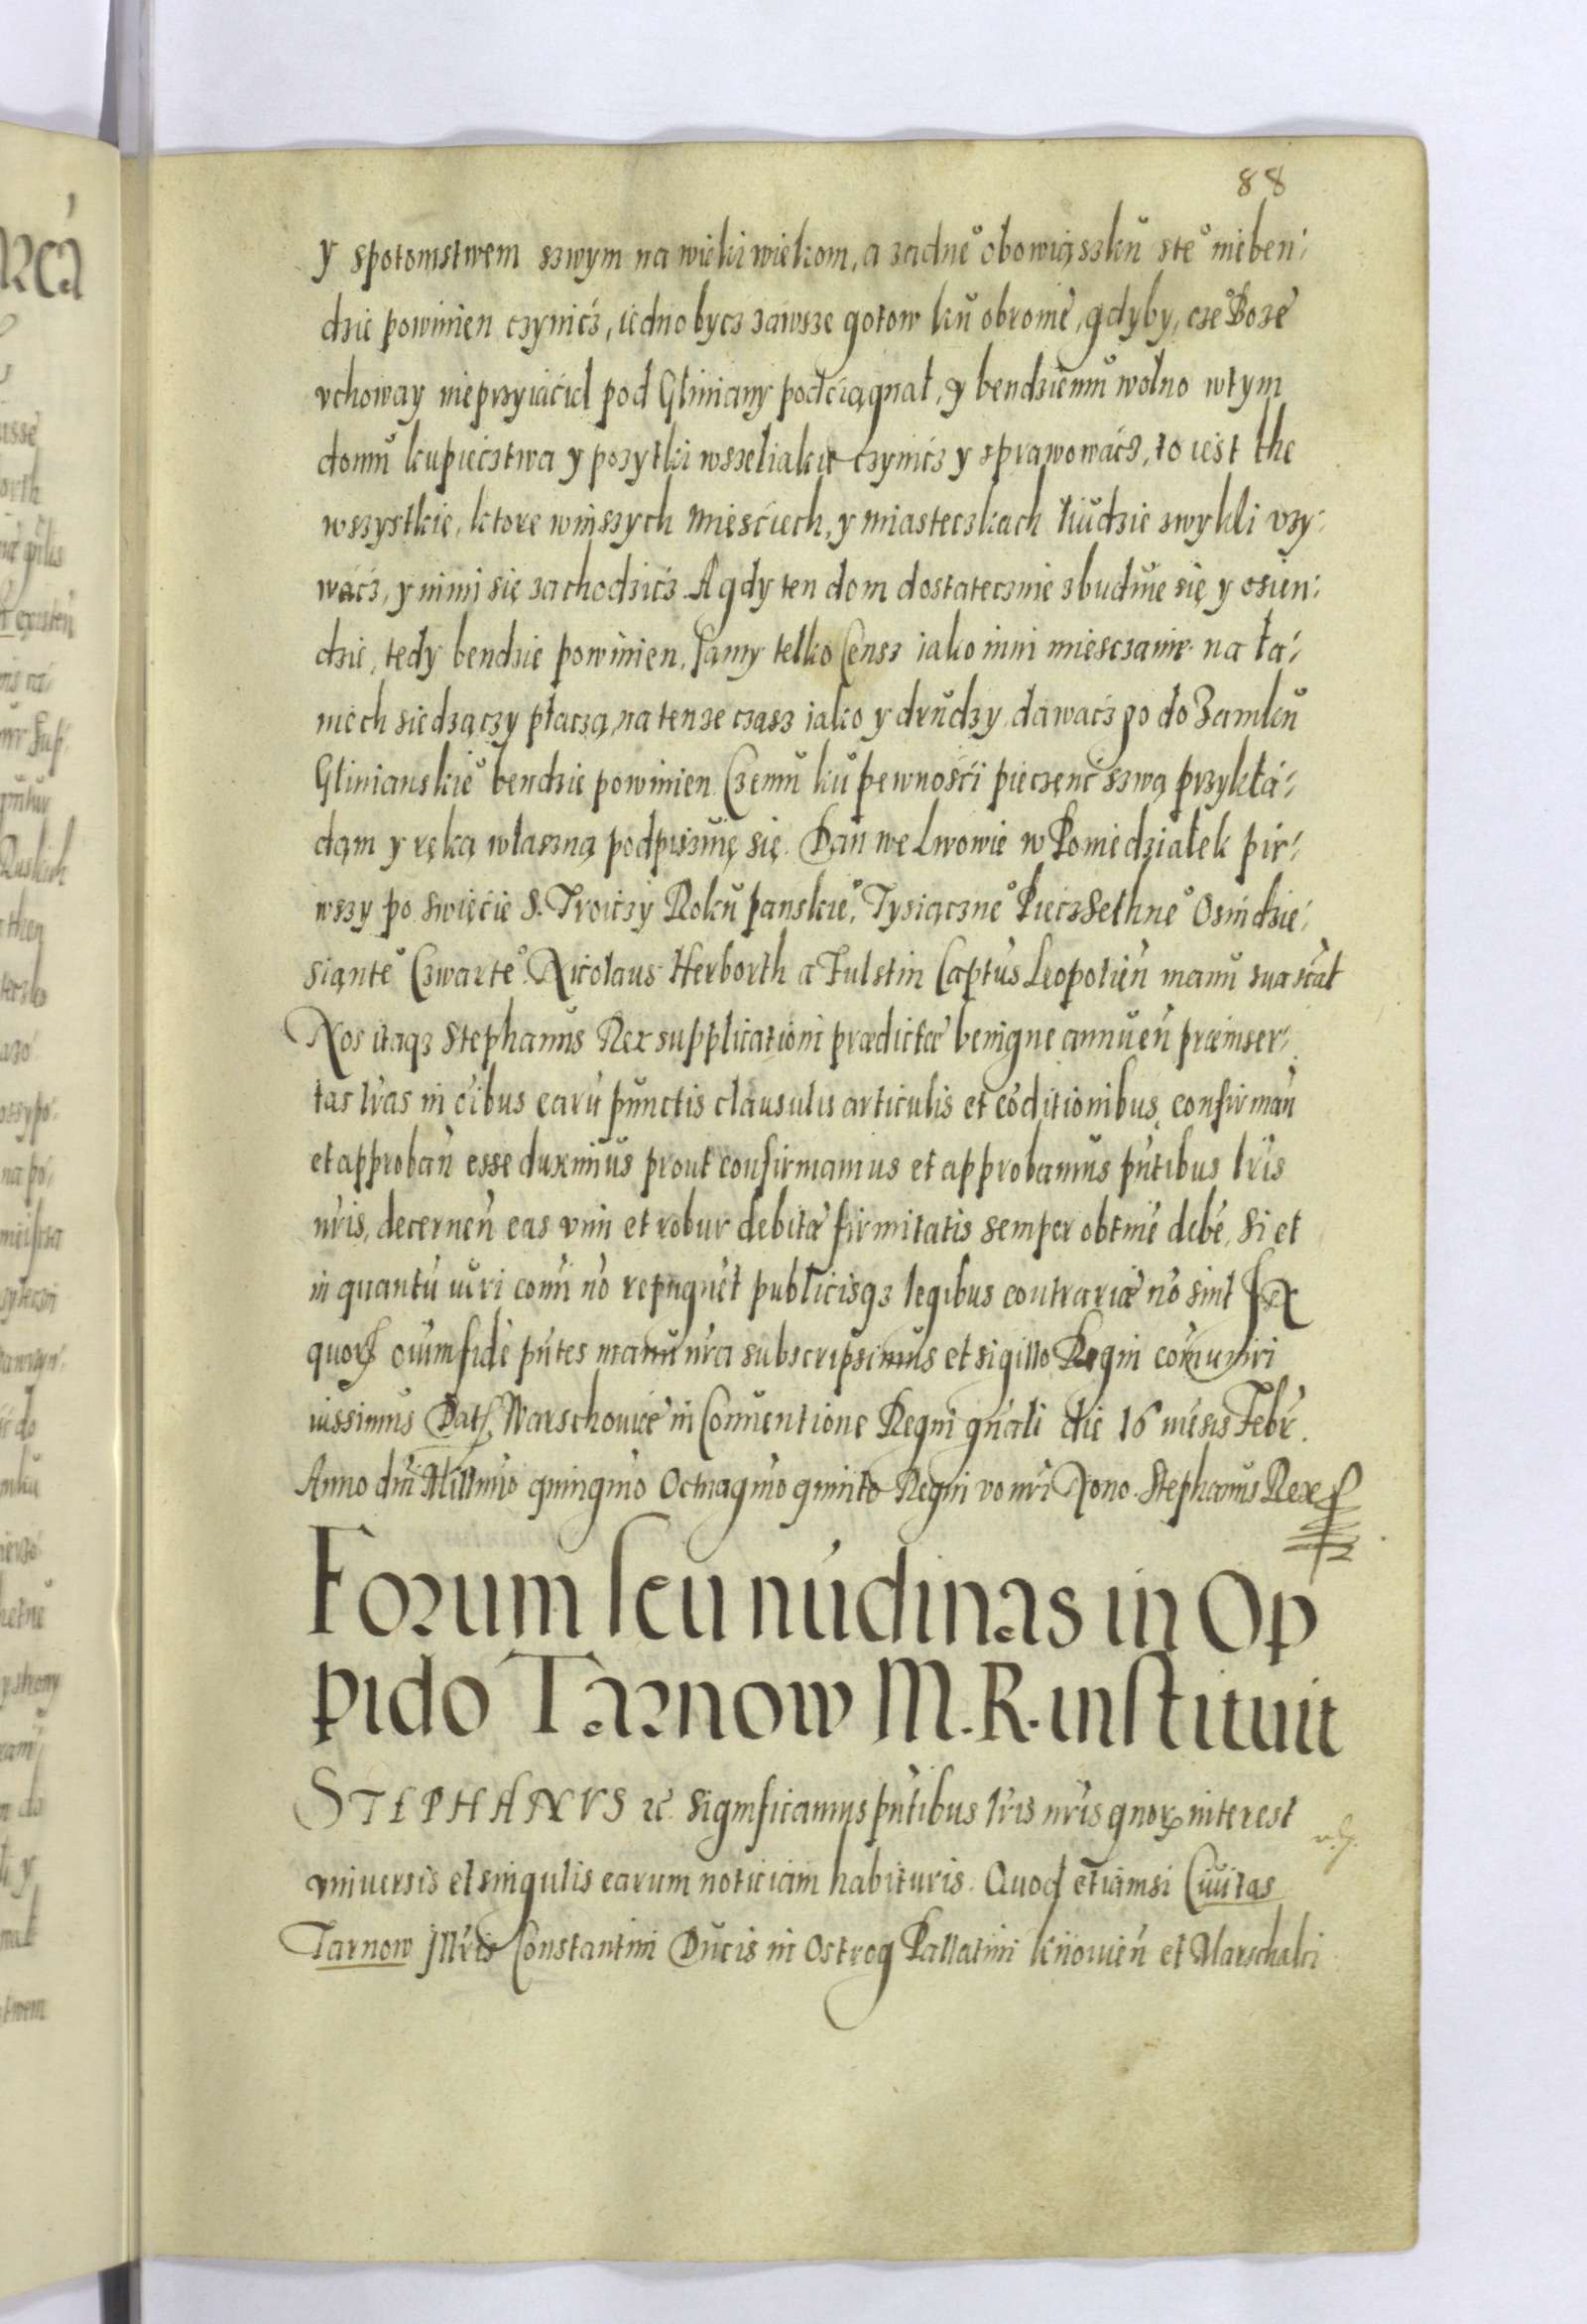 88
y spotomstwem szwym na wieki wiekom, a zadne° obowiąszku ste° nieben:
dzie powinien czynicz, iedno bycz zawsze gotow ku obronie, gdyby, cze° Boze
vchoway nieprzyiaciel pod Gliniany podciągnał, y bendziemu wolno wtym
domu kupiecztwa y pozytki wszeliakie czynicz y sprawowacz, to iest the
wszystkie, ktore winszych mięściech, y miasteczkach liudzie zwykli vzy:
wacz, y nimi się zachodzicz. A gdy ten dom dostatecznie zbuduie się y osien:
dzie, tedy bendzie powinien, samy telko Censz iako inni miesczanie na ła:
niech siedzączy płaczą, na tenze czasz iako y drudzy, dawacz go do Zamku
Glinianskie° bendzie powinien. Czemu ku pewnosći pieczenć szwą przykła:
dąm y ręką własżną podpisżuię się. Dan we Lwowie w Poniedziałek pir:
wszy po swięcie S. Troiczy Roku panskie°, Tysiączne° Pieczsethne° Osmdzie:
siąnte° Czwarte°. Nicolaus Herborth a Fulstin Captus Leopolien manu sua scał
Nos itaq3 Stephanus Rex supplicationi prædictæ benigne annuen præinser:
tas lras in oibus earu punctis clausulis articulis et coditionibus, confirman
et approban esse duximus prout confirmamus et approbamus pntibus lris
nris, decernen eas vim et robur debitæ firmitatis semper obtine debe, Si et
in quantu iuri comi no repugnet publicisq3 legibus contrariæ no sint In
quor oium fide pntes manu nra subscripsimus et sigillo Regni comuniri
iussimus Dat Warschouiæ in Conuentione Regni gnali die 16 mesis Febr.
Anno dni Millmo quingmo Octuagmo quinto Regni vo nri Nono. Stephanus Rex
Forum seu nudinas in Op
pido Tarnow M. R. instituit
STEPHANVS &c. Significamus pntibus lris nris quor interest
vniuersis et singulis earum noticiam habituris. Quod etiamsi Ciuitas
Tarnow Illris Constantini Ducis in Ostrog Pallatini Kiiouien et Marschalci